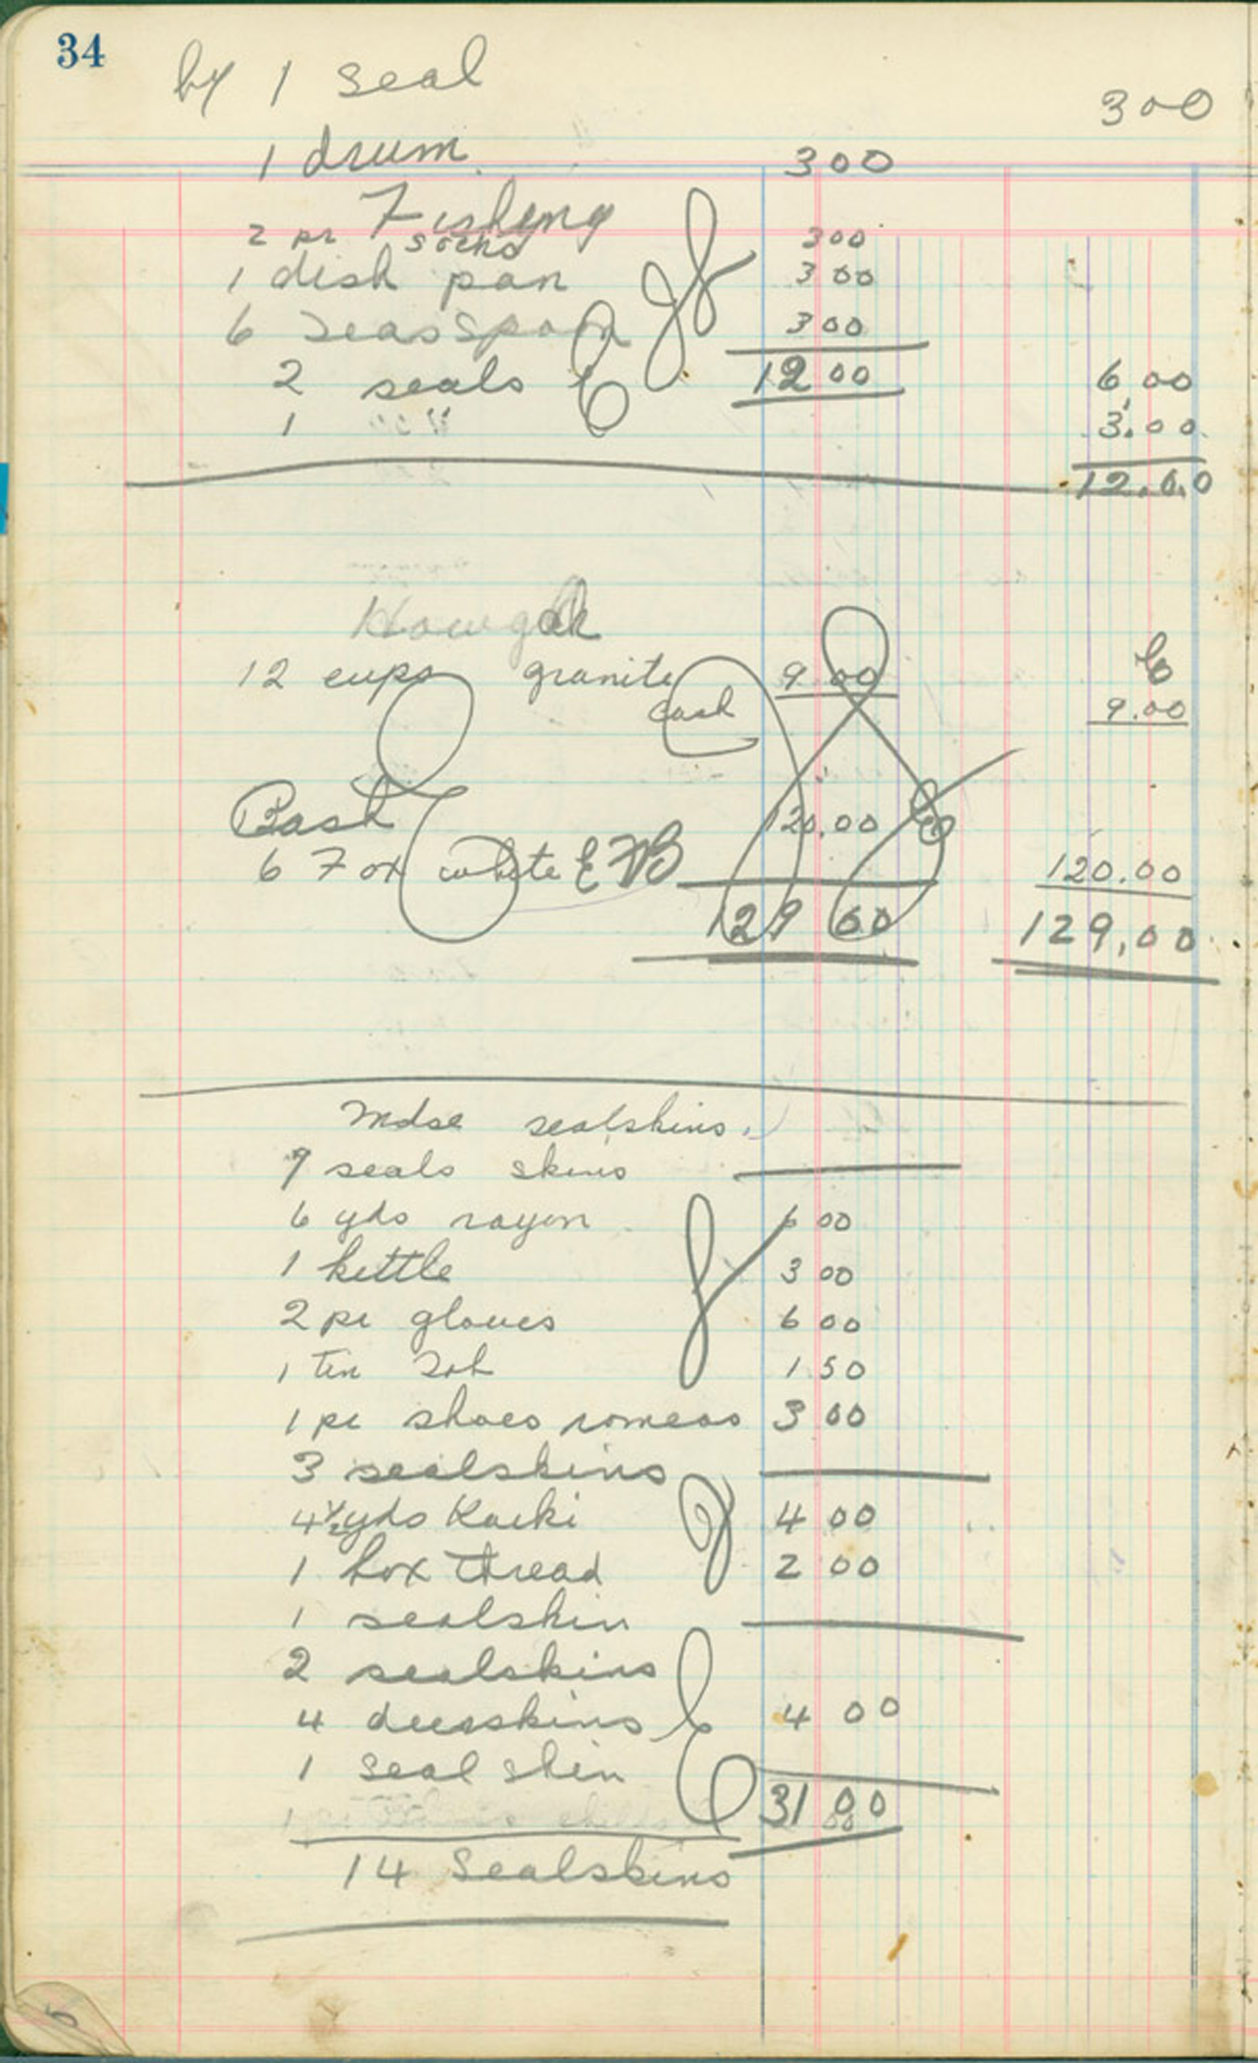 34
by 1 seal 3 00
1 drum. 3 00
Fishing
2 pr socks 3 00
1 dish pan 3 00
6 Teasspoon 3 00
2 seals 12 00 6 00
1 " 3.00
12.00
12 cups granite 9 00
Cash 9.00
Cash 120.00
6 Fox white 120.00
129 00 129,00
Mdse sealskins.
9 seals skins
6 yds rayon 6 00
1 kettle 3 00
2 pr gloves 6 00
1 Tin 1 50
1 pr shoes romeos 3 00
3 sealskins
4½ yds Kacki 4 00
1 box thread 2 00
1 sealskin
2 sealskins
4 deerskins 4 00
1 seal skin
31 00
14 Sealskins